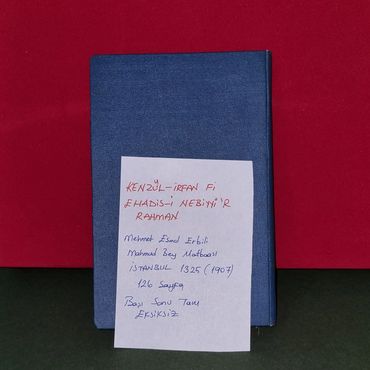 KENZÜL-İRFAN Fİ
EHADİS-İ NEBİYYİ'R
RAHMAN
Mehmet Esad Erbili
Mahmud Bey Matbaası
İSTANBUL 1325 (1907)
126 Sayfa
Başı Sonu Tam
EKSİKSİZ